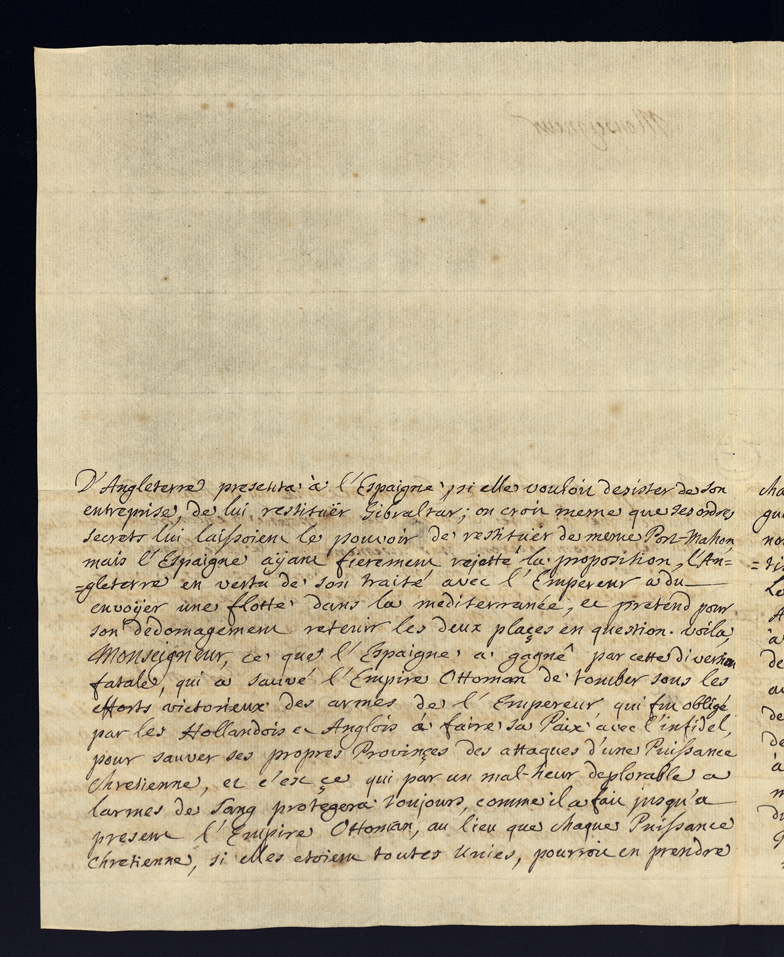 Monseigneur
D'Angleterre presenta à l'Espaigne, si elle vouloit desister de son
entreprise, de lui restituër Gibraltar; on croit meme que ses ordres
secrets lui laissoient le pouvoir de restituër de meme Port-Mahon
mais l'Espaigne aÿant fierement rejetté la proposition, l'An=
=gleterre en vertu de son traité avec l'Empereur a du
envoÿer une flotte dans la mediterranée, et pretend pour
son dedomagement retenir les deux plaçes en question. voila
Monseigneur, ce que l'Espaigne a gagné par cette diversion
fatale, qui a sauvé l'Empire Ottoman de tomber sous les
efforts victorieux des armes de l'Empereur qui fut obligé
par les Hollandois et Anglois à faire sa Paix avec l'infidel,
pour sauver ses propres Provinçes des attaques d'une Puissance
Chretienne, et c'est çe qui par un mal-heur deplorable a
larmes de Sang protegera toujours, comme il a fait jusqu'a
present l'Empire Ottoman, au lieu que chaque Puissance
Chretienne, si elles etoient toutes Unies, pourroit en prendre